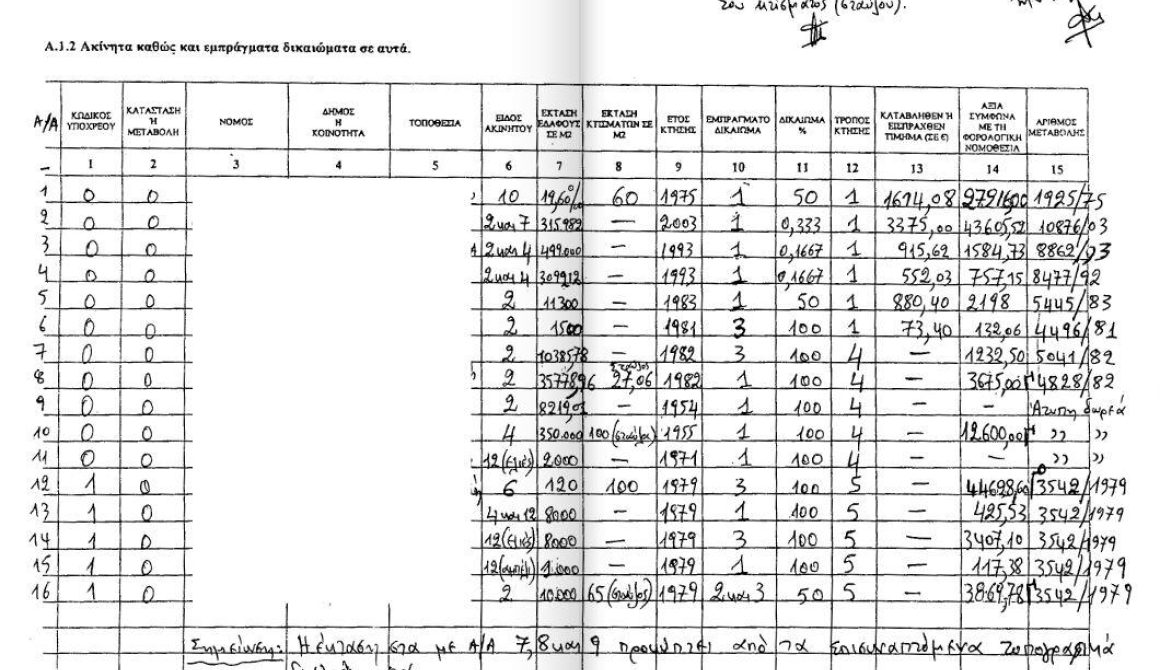 του κτίσματος (στάυλου).
Α.1.2 Ακίνητα καθώς και εμπράγματα δικαιώματα σε αυτά.
Α/Α ΚΩΔΙΚΟΣ ΥΠΟΧΡΕΟΥ ΚΑΤΑΣΤΑΣΗ Ή ΜΕΤΑΒΟΛΗ ΝΟΜΟΣ ΔΗΜΟΣ Η ΚΟΙΝΟΤΗΤΑ ΤΟΠΟΘΕΣΙΑ ΕΙΔΟΣ ΑΚΙΝΗΤΟΥ ΕΚΤΑΣΗ ΕΔΑΦΟΥΣ ΣΕ Μ2 ΕΚΤΑΣΗ ΚΤΙΣΜΑΤΩΝ ΣΕ Μ2 ΕΤΟΣ ΚΤΗΣΗΣ ΕΜΠΡΑΓΜΑΤΟ ΔΙΚΑΙΩΜΑ ΔΙΚΑΙΩΜΑ % ΤΡΟΠΟΣ ΚΤΗΣΗΣ ΚΑΤΑΒΛΗΘΕΝ Ή ΕΙΣΠΡΑΧΘΕΝ ΤΙΜΗΜΑ (ΣΕ €) ΑΞΙΑ ΣΥΜΦΩΝΑ ΜΕ ΤΗ ΦΟΡΟΛΟΓΙΚΗ ΝΟΜΟΘΕΣΙΑ ΑΡΙΘΜΟΣ ΜΕΤΑΒΟΛΗΣ
– 1 2 3 4 5 6 7 8 9 10 11 12 13 14 15
1 0 0 10 60 1975 1 50 1 1614,08 1925/75
2 0 0 2 και 7 315.982 — 2003 1 0,333 1 3375,00 4360,52 10876/03
3 0 0 2 και 4 499.000 — 1993 1 0,1667 1 915,62 1584,73 8862/93
4 0 0 2 και 4 309912 — 1993 1 0,1667 1 552,03 757,15 8477/92
5 0 0 2 11300 — 1983 1 50 1 880,40 2198 5445/83
6 0 0 2 1500 — 1981 3 100 1 73,40 132,06 4496/81
7 0 0 2 1038578 — 1982 3 100 4 — 1232,50 5041/82
8 0 0 2 357789,6 στάυλος 27,06 1982 1 100 4 — 3675,00 4828/82
9 0 0 2 821901 — 1954 1 100 4 — – Άτυπη δωρεά
10 0 0 4 350.000 100 (στάυλος) 1955 1 100 4 — 12600,00 ,, ,,
11 0 0 12 (ελιές) 2000 — 1971 1 100 4 — – ,, ,,
12 1 0 6 120 100 1979 3 100 5 — 44698,60 3542/1979
13 1 0 4 και 12 8000 — 1979 1 100 5 — 425,53 3542/1979
14 1 0 12 (ελιές) 8000 — 1979 3 100 5 — 3407,10 3542/1979
15 1 0 12 (αμπέλι) 1.000 — 1979 1 100 5 — 117,38 3542/1979
16 1 0 2 10.000 65 (στάυλος) 1979 2 και 3 50 5 — 3869,78 3542/1979
Σημείωση: Η έκταση στα με Α/Α 7, 8 και 9 προκύπτει από τα επισυναπτόμενα τοπογραφικά